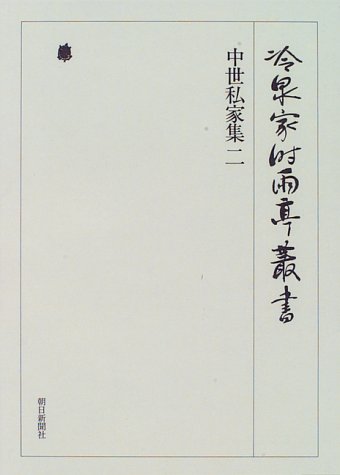 冷泉家時雨亭叢書
中世私家集 二
朝日新聞社